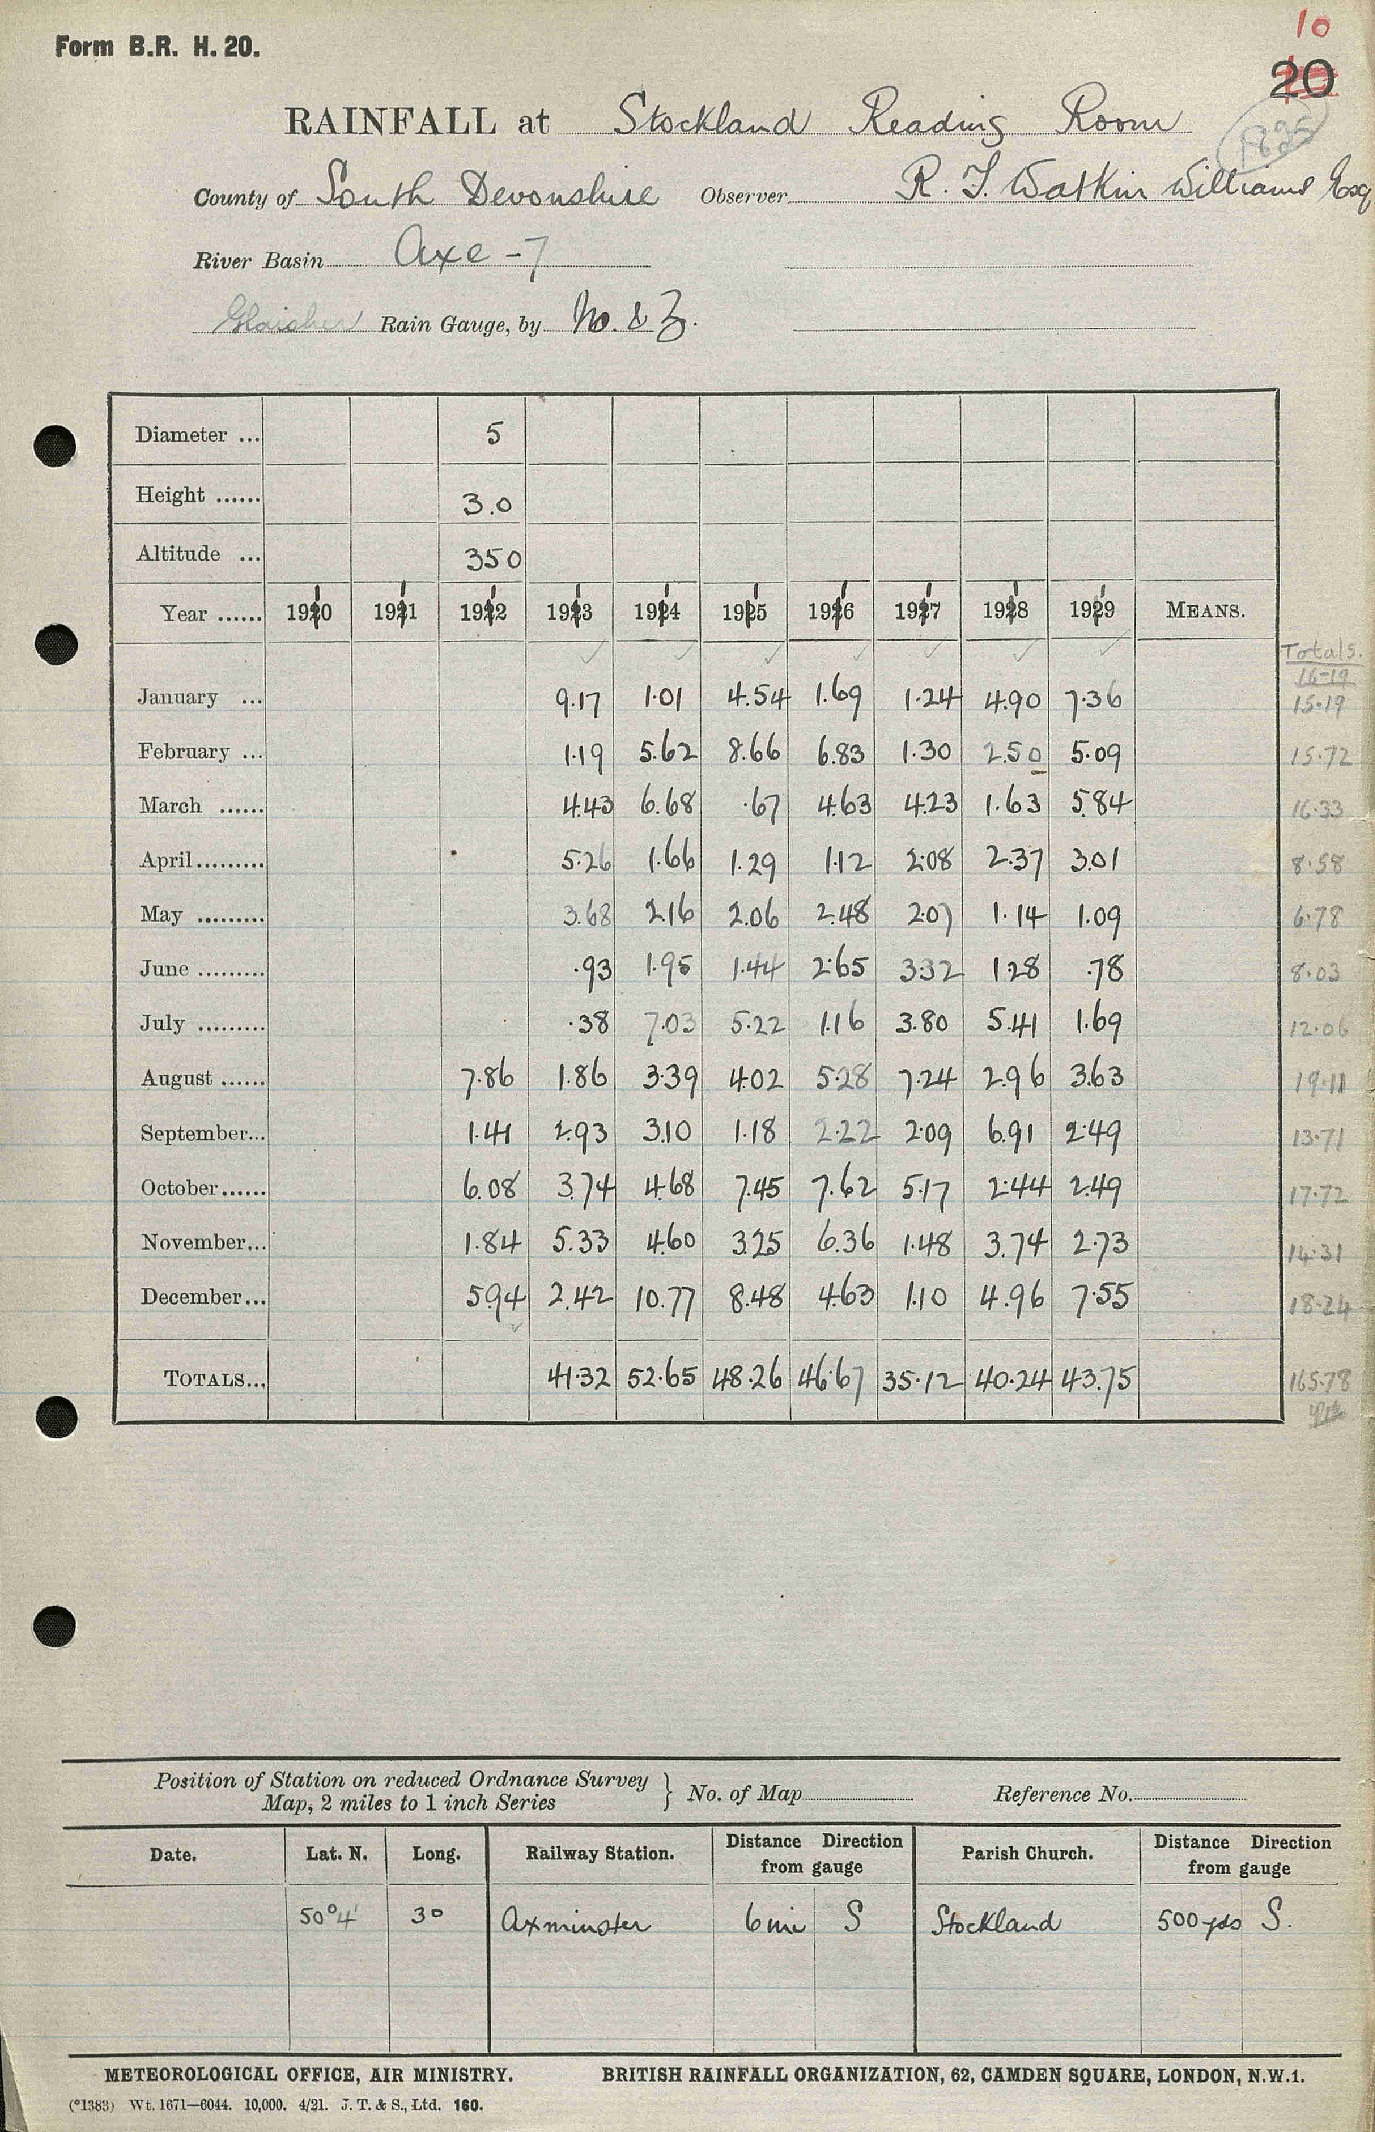 Form B.R. H. 20.
10
20
1825
RAINFALL at Stockland Reading Room
County of South Devonshire Observer R. T. Watkin Williams Esq
River Basin Axe - 7
Glaisher Rain Gauge, by N. & Z.
Diameter ... 5
Height ...... 3.0
Altitude ... 350
Year ...... 1910 1911 1912 1913 1914 1915 1916 1917 1918 1919 MEANS.
Totals.
16-19
January ... 9.17 1.01 4.54 1.69 1.24 4.90 7.36 15.19
February ... 1.19 5.62 8.66 6.83 1.30 2.50 5.09 15.72
March ...... 4.43 6.68 .67 4.63 4.23 1.63 5.84 16.33
April......... 5.26 1.66 1.29 1.12 2.08 2.37 3.01 8.58
May ......... 3.68 2.16 2.06 2.48 2.07 1.14 1.09 6.78
June ......... .93 1.95 1.44 2.65 3.32 1.28 .78 8.03
July ......... .38 7.03 5.22 1.16 3.80 5.41 1.69 12.06
August ...... 7.86 1.86 3.39 4.02 5.28 7.24 2.96 3.63 19.11
September... 1.41 2.93 3.10 1.18 2.22 2.09 6.91 2.49 13.71
October...... 6.08 3.74 4.68 7.45 7.62 5.17 2.44 2.49 17.72
November... 1.84 5.33 4.60 3.25 6.36 1.48 3.74 2.73 14.31
December... 5.94 2.42 10.77 8.48 4.63 1.10 4.96 7.55 18.24
TOTALS... 41.32 52.65 48.26 46.67 35.12 40.24 43.75 165.78
Position of Station on reduced Ordnance Survey
Map, 2 miles to 1 inch Series } No. of Map Reference No.
Date. Lat. N. Long. Railway Station. Distance Direction from gauge Parish Church. Distance Direction from gauge
50°4' 3° Axminster 6 mi S Stockland 500 yds S.
METEOROLOGICAL OFFICE, AIR MINISTRY. BRITISH RAINFALL ORGANIZATION, 62, CAMDEN SQUARE, LONDON, N.W.1.
(*1383) Wt. 1671—6044. 10,000. 4/21. J. T. & S., Ltd. 160.